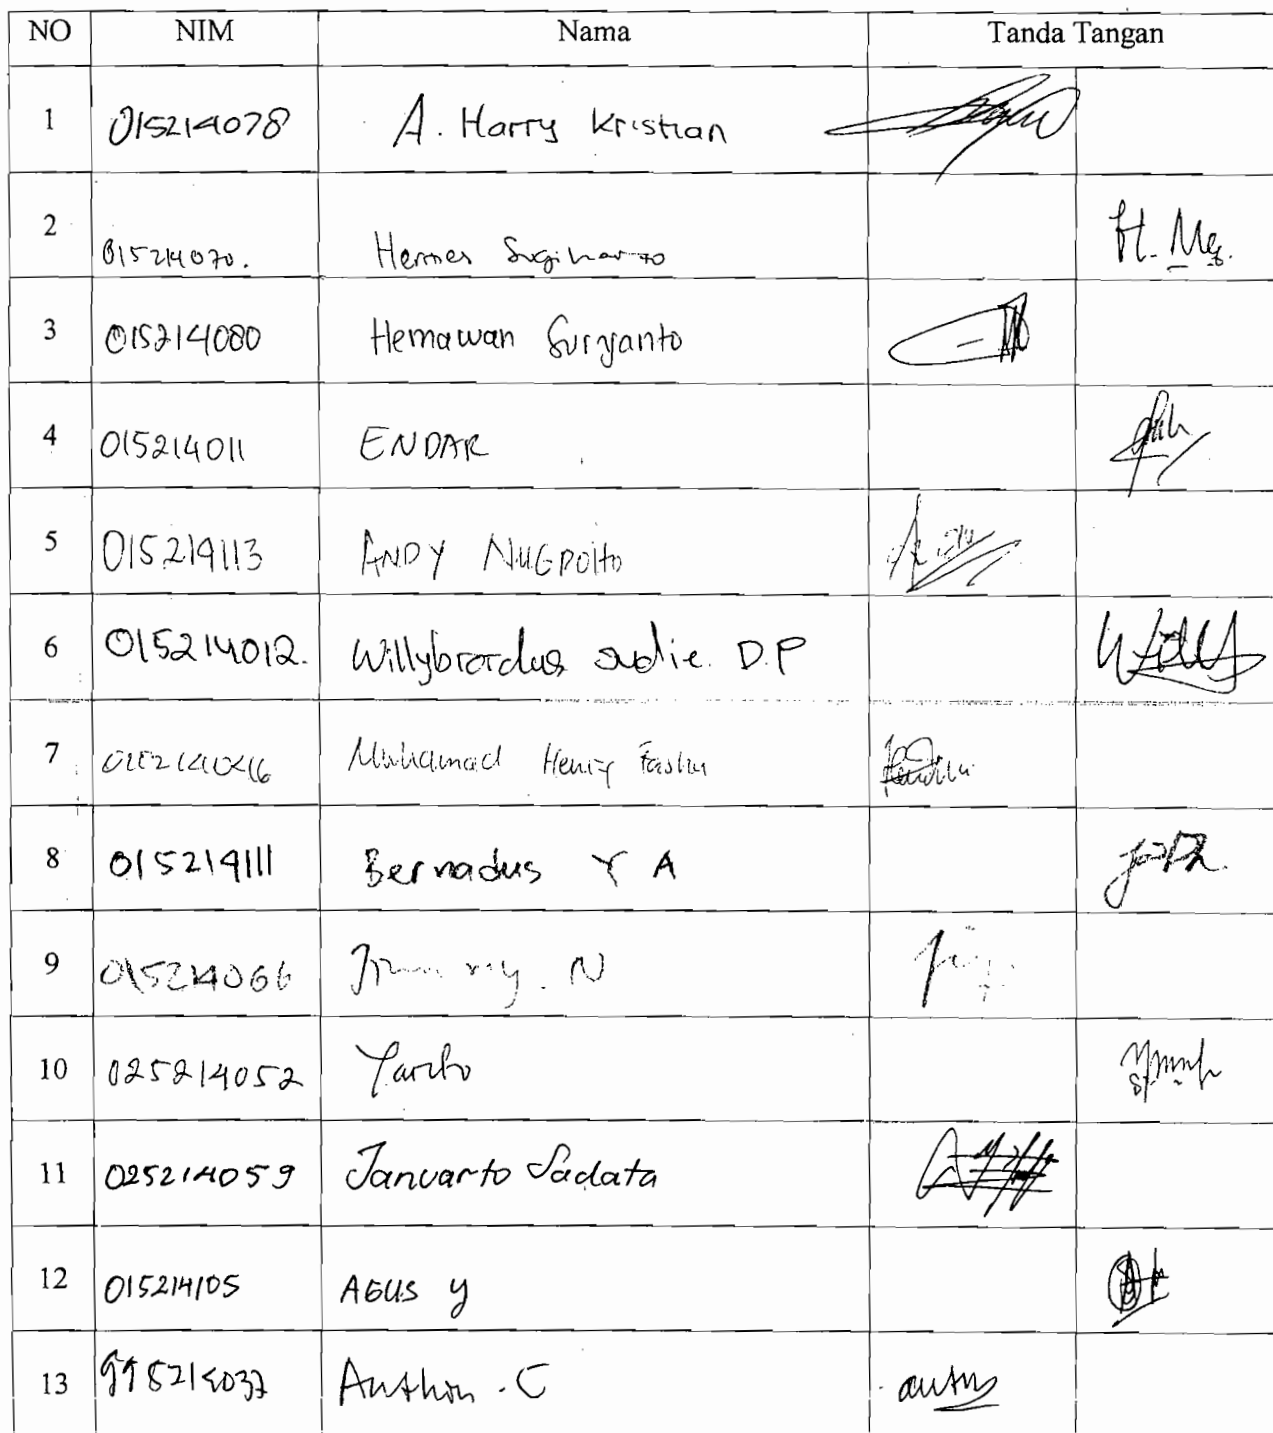 NO NIM Nama Tanda Tangan
1 015214078 A. Harry Kristian
2 015214070. Hermes Sugiharto H. Meg.
3 015214080 Hemawan Suryanto
4 015214011 ENDAR
5 015214113 ANDY NUGROHO
6 015214012. Willybrordus sudie. D.P
7 Muhamad Henry
8 015214111 Bernadus Y A
9 015214066 Jimmy. N
10 025214052
11 025214059 Januarto Sadata
12 015214105 AGUS Y
13 995214037 Anthon. C